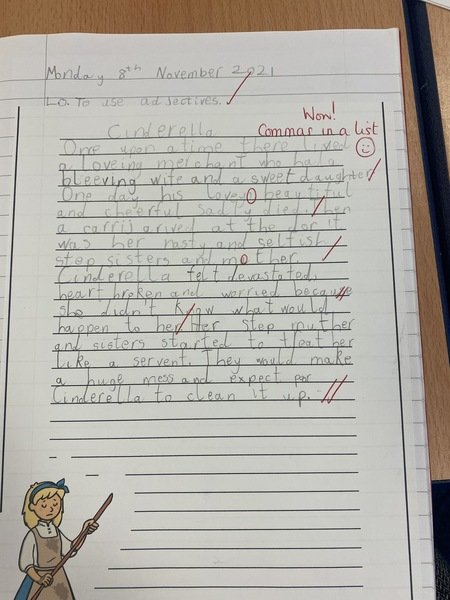 Monday 8th November 2021
Lo. To use adjectives.
Wow!
Commas in a list
Cinderella
One upon a time there lived
a loveing merchant who had a
bleeving wife and a sweet daughter
One day his lovey, beautiful
and cheerful sadly died. Then
a carrij arived at the dor it
was her nasty and selfish
step sisters and mother.
Cinderella felt devastated,
heart broken and worried because
she didn't know what would
happen to her. Her step muther
and sisters started to treat her
like a servent. They would make
a huge mess and expect for
Cinderella to clean it up.